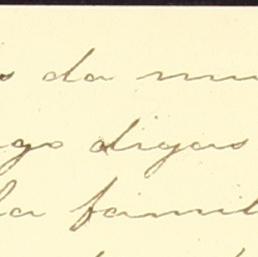 s da mu
go digas
la famil